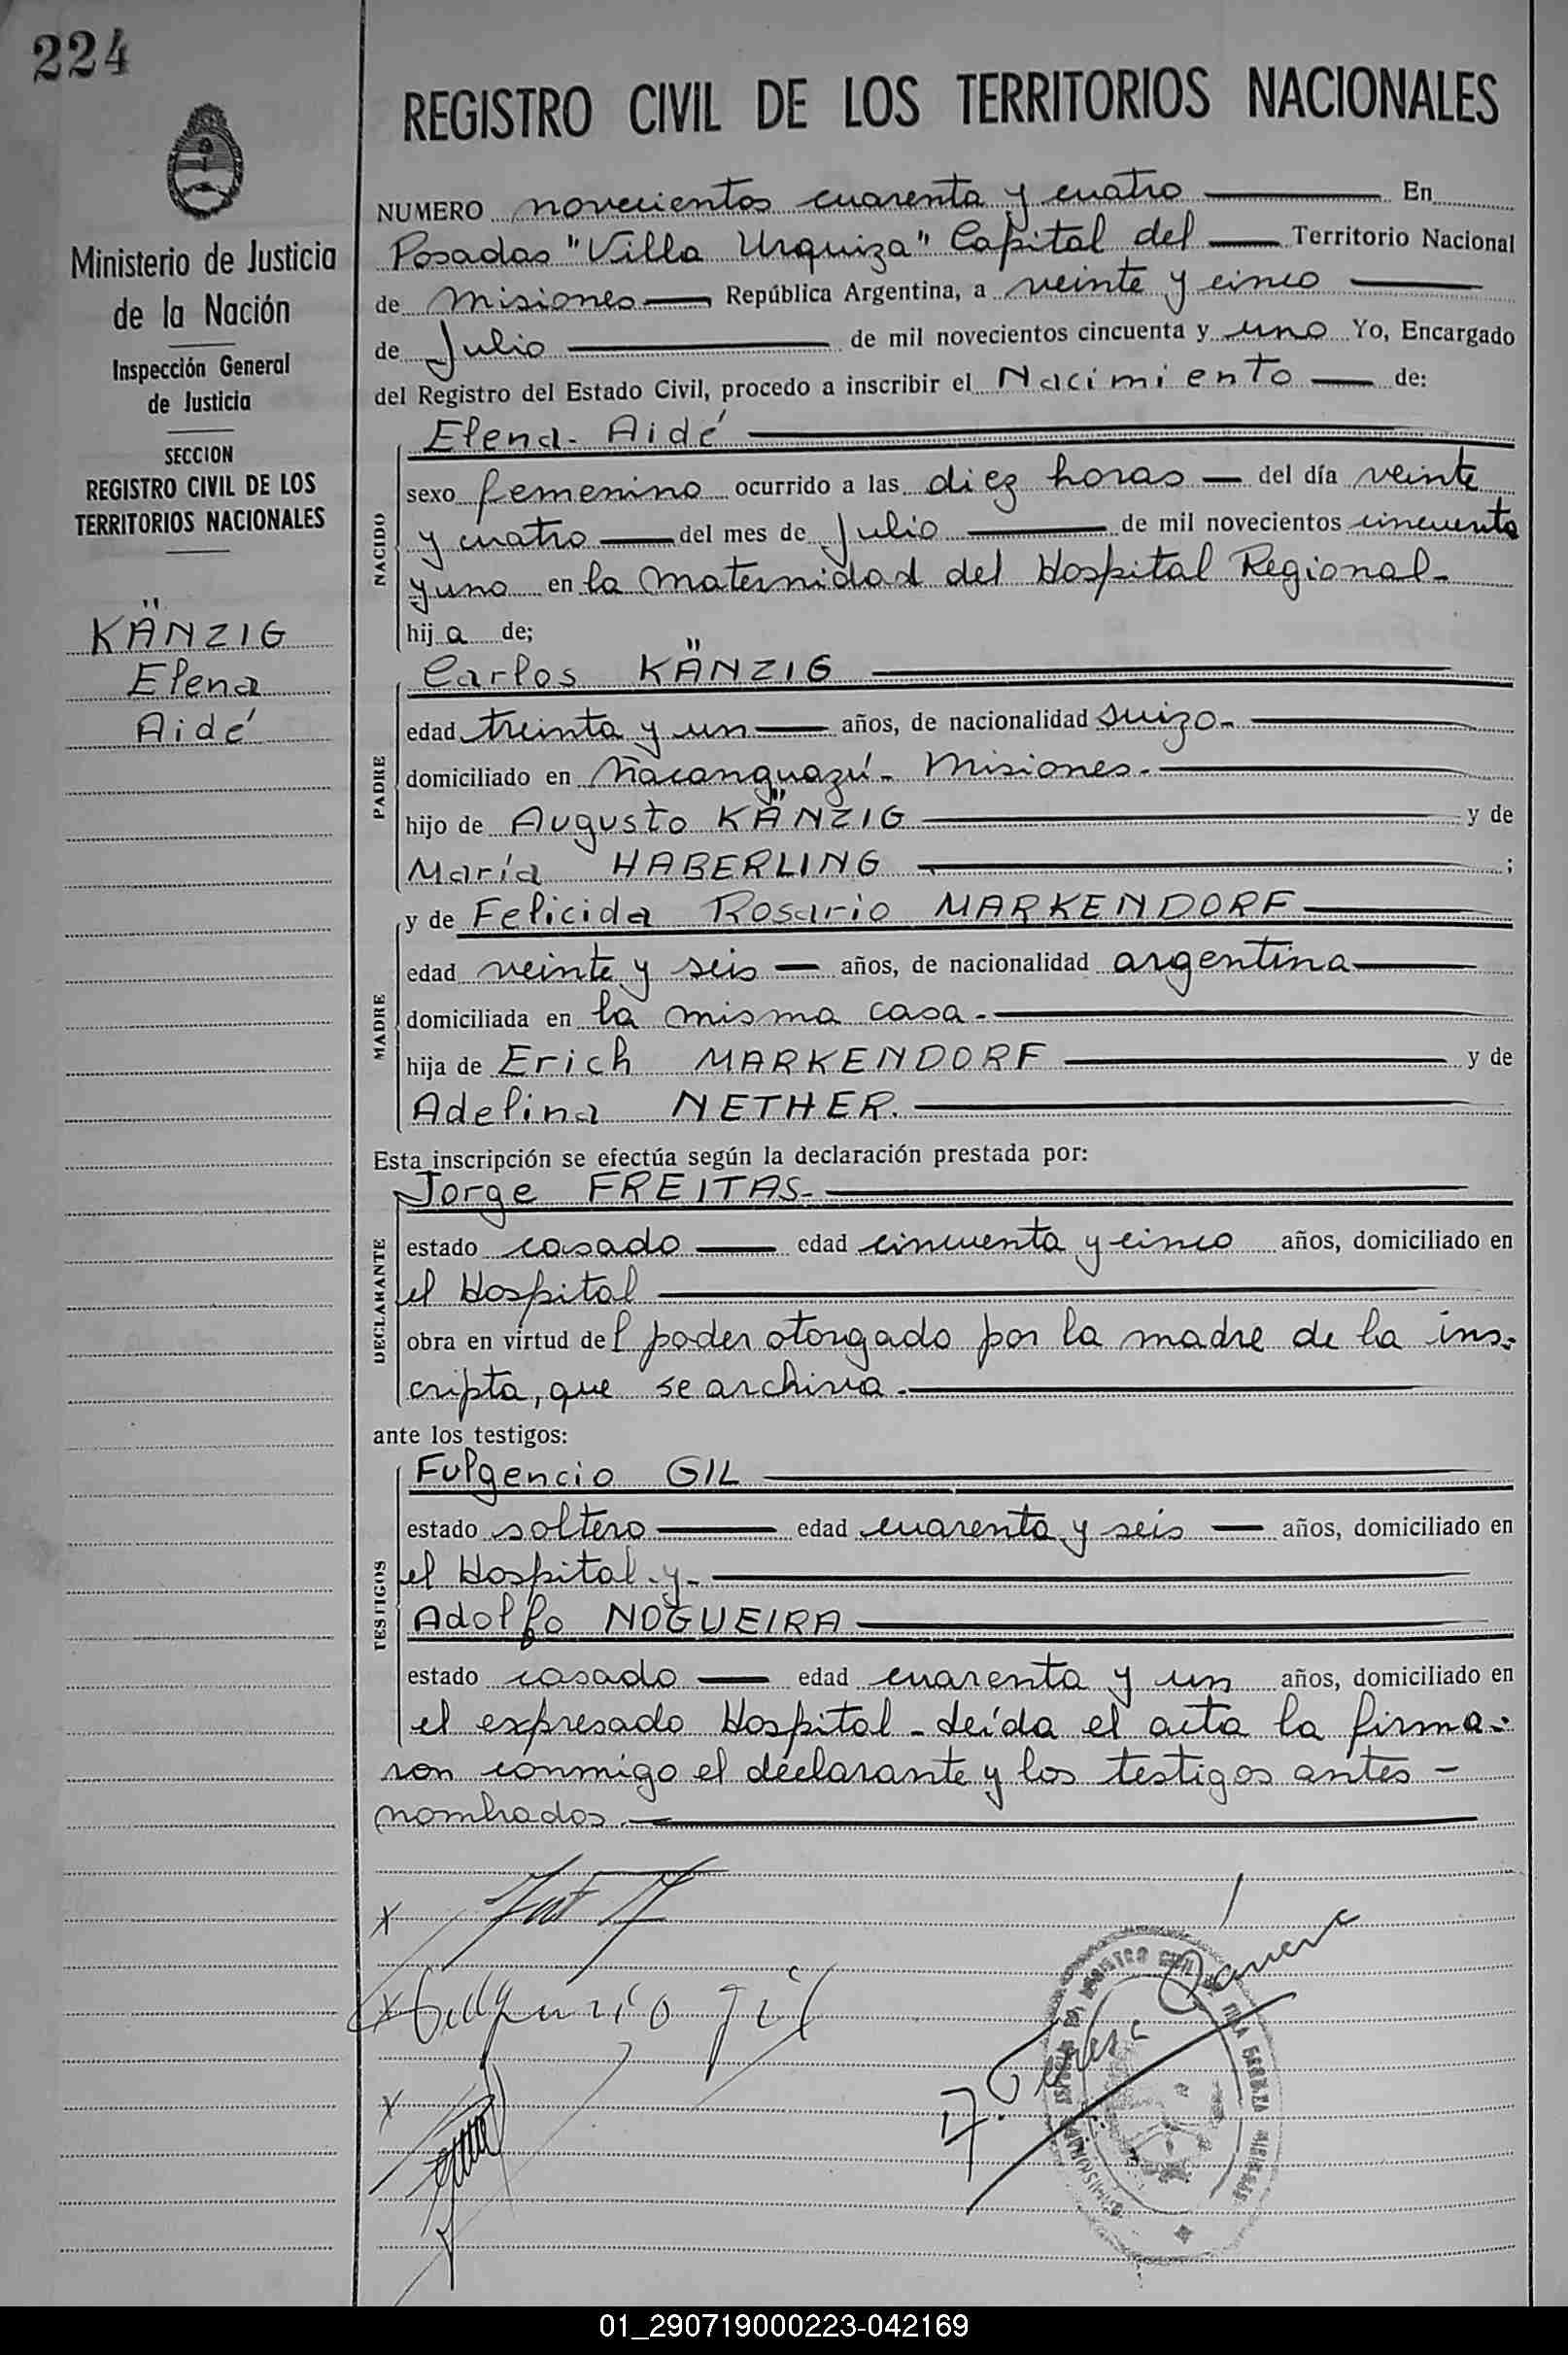 224
REGISTRO CIVIL DE LOS TERRITORIOS NACIONALES
Ministerio de Justicia
de la Nación
Inspección General
de Justicia
SECCION
REGISTRO CIVIL DE LOS
TERRITORIOS NACIONALES
KÄNZIG
Elena
Aidé
NUMERO novecientos cuarenta y cuatro En
Posadas "Villa Urquiza" Capital del Territorio Nacional
de Misiones República Argentina, a veinte y cinco
de Julio de mil novecientos cincuenta y uno Yo, Encargado
del Registro del Estado Civil, procedo a inscribir el Nacimiento de:
NACIDO
Elena Aidé
sexo femenino ocurrido a las diez horas del día veinte
y cuatro del mes de Julio de mil novecientos cincuenta
y uno en la maternidad del Hospital Regional-
hija de;
PADRE
Carlos KÄNZIG
edad treinta y un años, de nacionalidad suizo-
domiciliado en Ñacanguazú- Misiones-
hijo de Augusto KÄNZIG y de
María HABERLING ;
MADRE
y de Felicida Rosario MARKENDORF
edad veinte y seis años, de nacionalidad argentina
domiciliada en la misma casa-
hija de Erich MARKENDORF y de
Adelina NETHER.
Esta inscripción se efectúa según la declaración prestada por:
DECLARANTE
Jorge FREITAS-
estado casado edad cincuenta y cinco años, domiciliado en
el Hospital
obra en virtud del poder otorgado por la madre de la ins-
cripta, que se archiva.
ante los testigos:
TESTIGOS
Fulgencio GIL
estado soltero edad cuarenta y seis años, domiciliado en
el Hospital-y-
Adolfo NOGUEIRA
estado casado edad cuarenta y un años, domiciliado en
el expresado Hospital-Leída el acta la firma-
ron conmigo el declarante y los testigos antes-
nombrados.
Fulgencio Gil
01_290719000223-042169